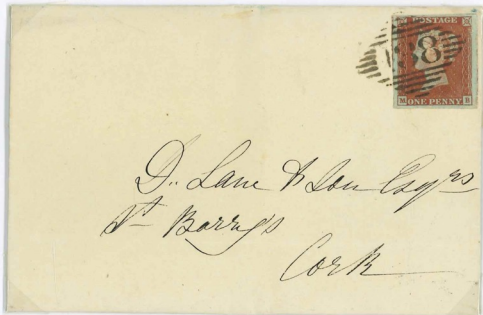 POSTAGE
188
M ONE PENNY B
D.. Lane & Son Esqrs
St Barry's
Cork